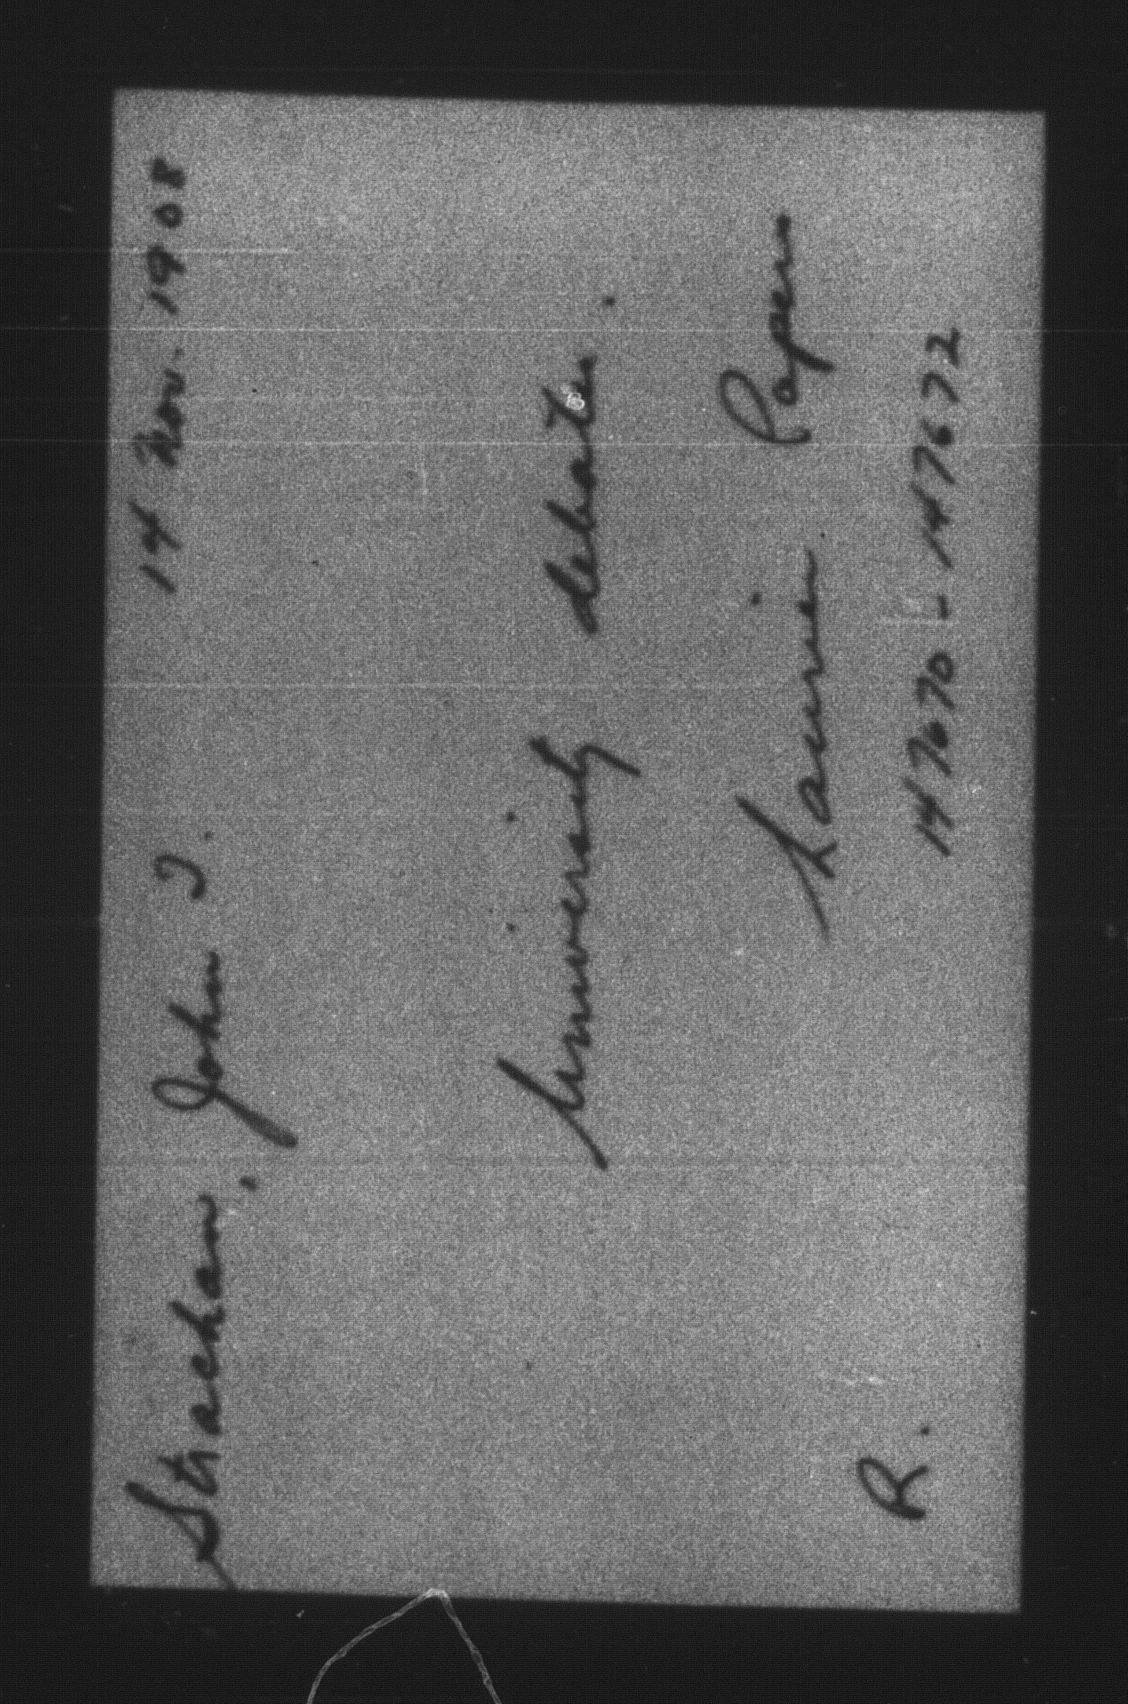 Strachan, John J. 14 Nov. 1908
University debates.
Laurier Papers
R. 147670-147672